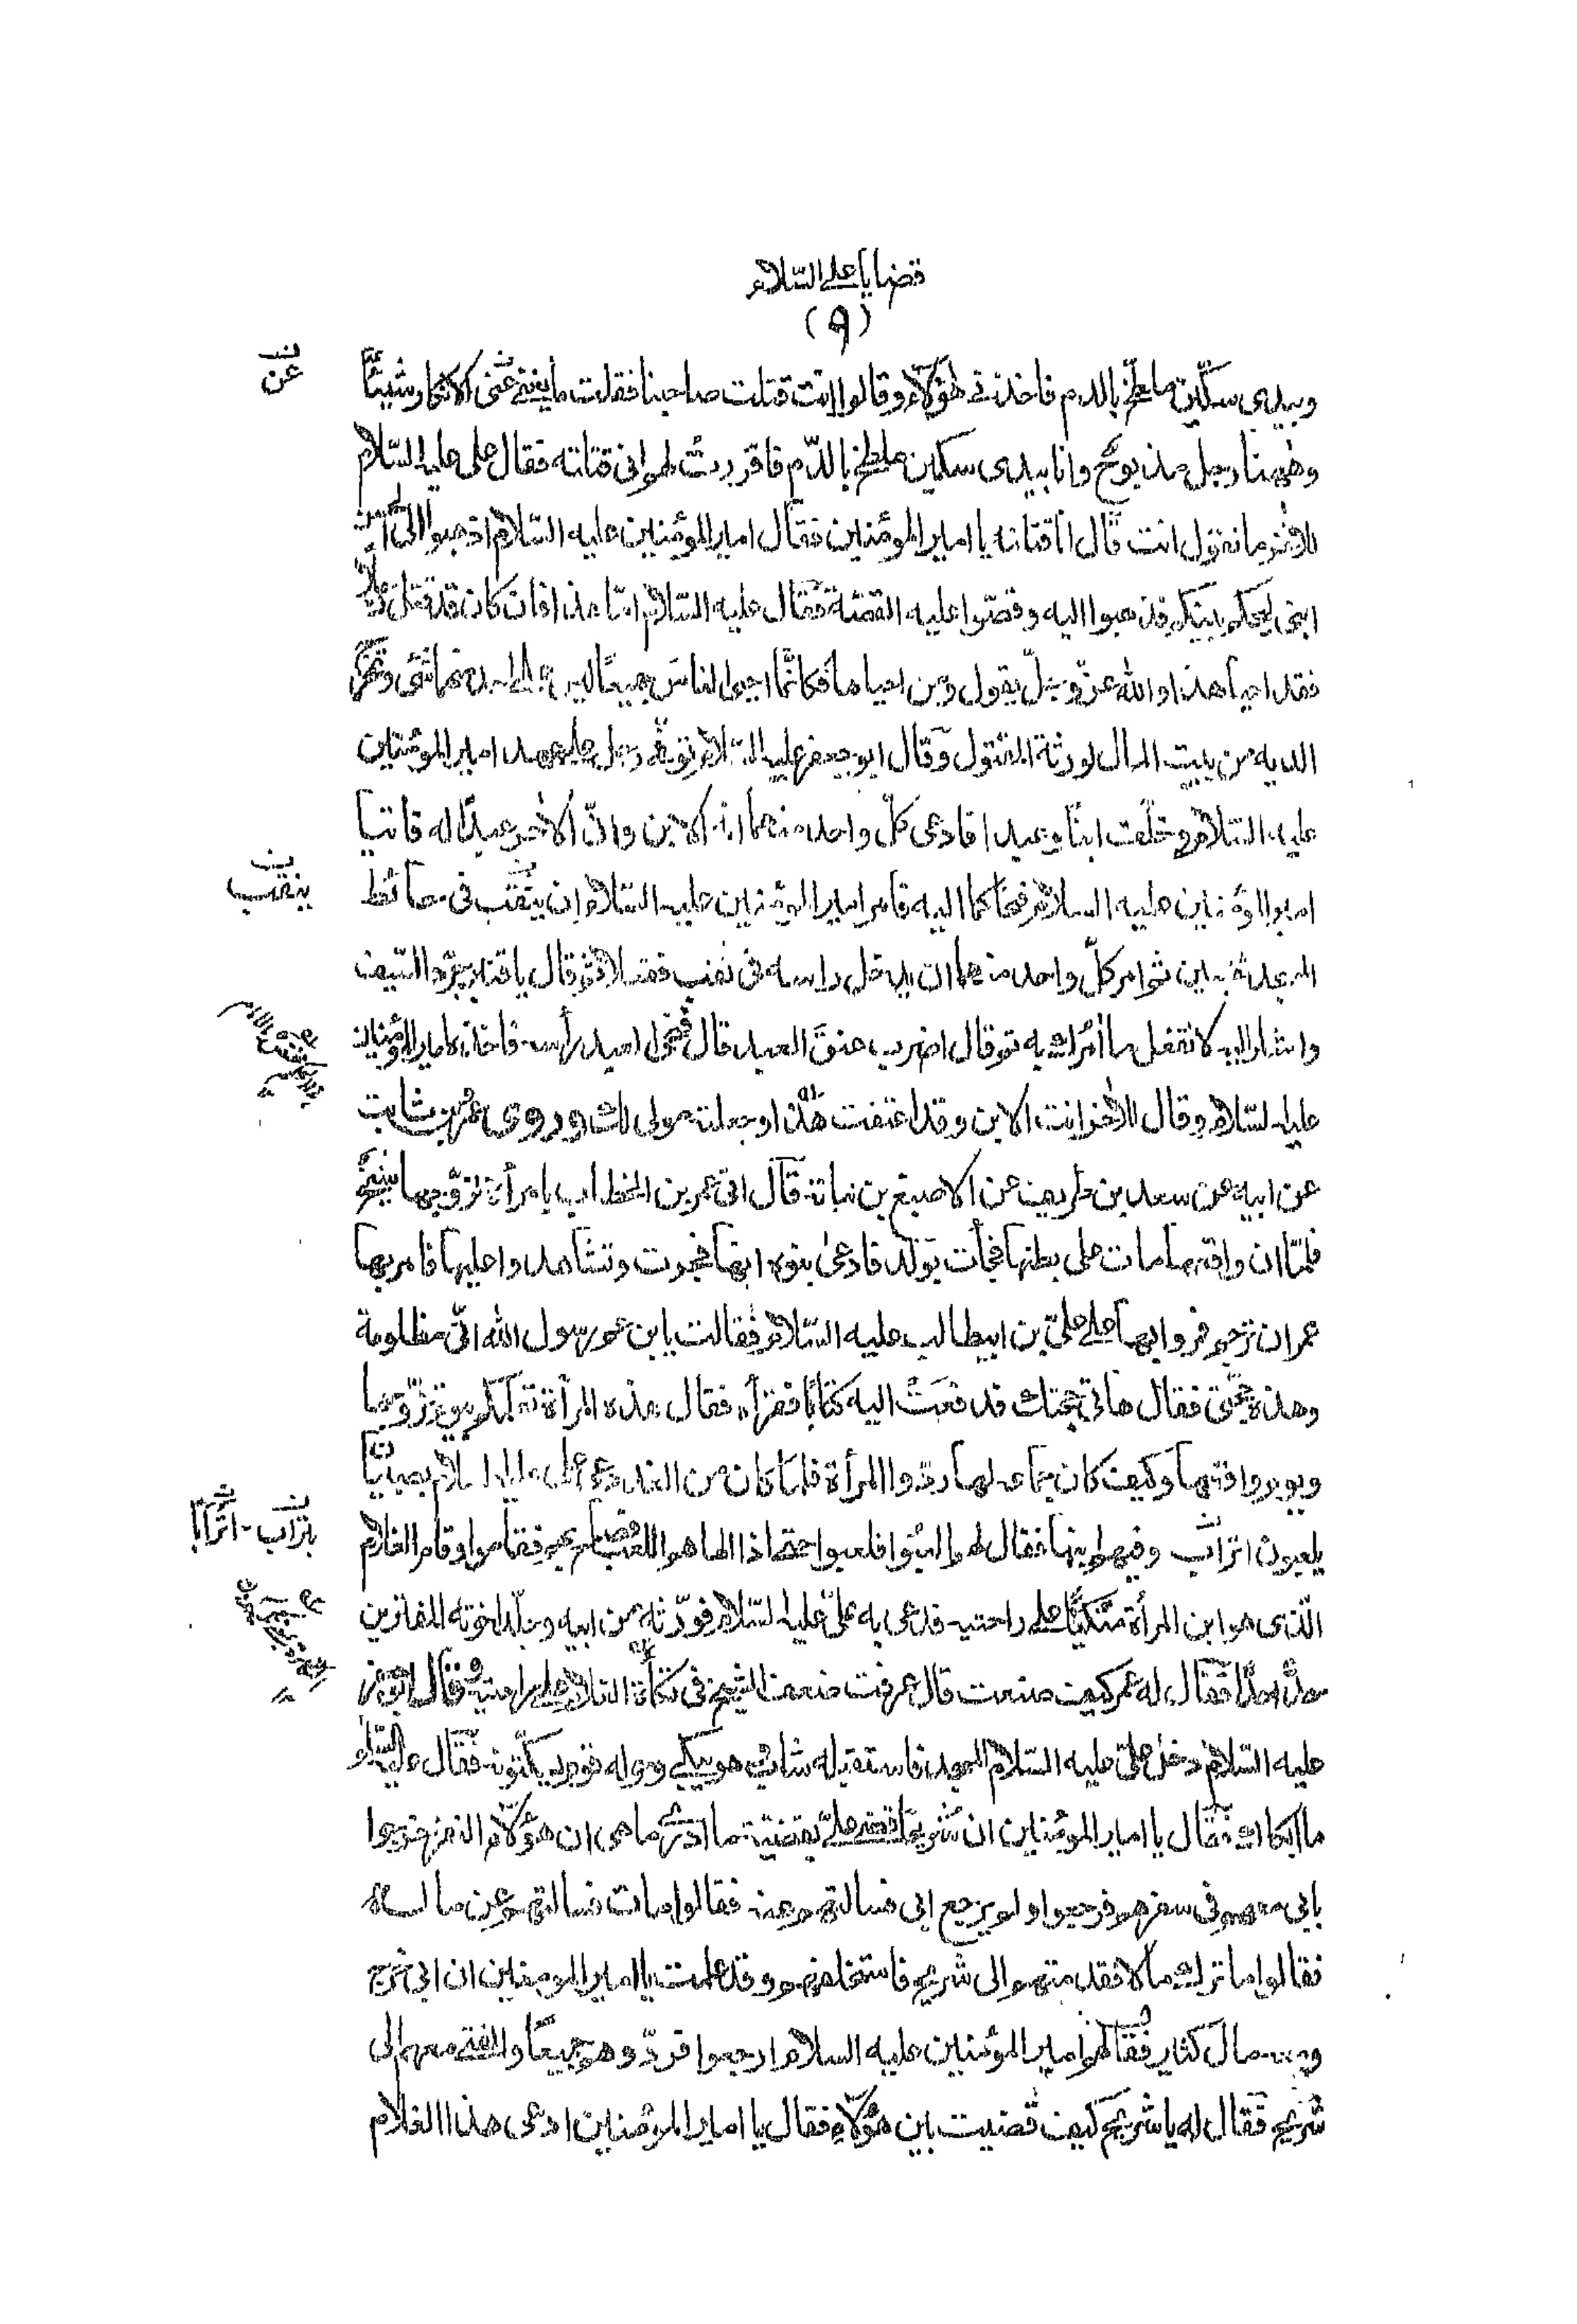 قضایا علی السّلام
(٩)
وبيدی سكّين ملطّخ بالدم فاخذنی هٰؤلآء وقالوا انت قتلت صاحبنا فقلت ما يغنی عنّی الانكار شيئًا
عن
وهٰهنا رجل مذبوح وانا بيدی سكين ملطخ بالدّم فاقررت لهم انی قتلته فقال علی عليه السّلام
للاٰخر ما تقول انت قال انا قتلته يا امير المؤمنين فقال امير المؤمنين عليه السّلام اذهبوا الی الحسن
ابنی ليحكم بينكم فذهبوا اليه وقصّوا عليه القصّة فقال عليه السّلام امّا هذا فان كان قد قتل رجلًا
فقد احيا هذا والله عزّ وجلّ يقول ومن احياها فكانّما احيی الناس جميعًا ليس علی احد منهما شئی وتخرج
الديه من بيت المال لورثة المقتول وقال ابو جعفر عليه السّلام توفّی رجل علی عهد امير المؤمنين
عليه السّلام وخلّف ابنًا وعبدا فادعی كلّ واحد منهما انه الابن وانّ الاٰخر عبدًا له فاتيا
امير المؤمنين عليه السلام فتحاكما اليه فامر امير المؤمنين عليه السّلام ان يثقب فی حآئط
ينقب
المسجد ثقبين ثم امر كلّ واحد منهما ان يدخل راسه فی ثقب ففعلا ثم قال يا قنبر جرّد السّيف
واشار اليه لا تفعل ما اٰمرك به ثم قال اضرب عنق العبد قال فنحّی العبد رأسه فاخذه امير المؤمنين
عليه السّلام وقال للاٰخر انت الابن وقد اعتقت هٰذا وجعلته مولی لك وروی عمرو بن ثابت
عن ابيه عن سعد بن طريف عن الاصبغ بن نباتة قال اتی عمر بن الخطاب بامرأة تزوّجها شيخ
فلمّا ان واقعها مات علی بطنها فجاٰت بولد فادعیٰ بنوه انها فجرت وتشاهدوا عليها فامر بها
عمر ان ترجم فمروا بها علی علیّ بن ابيطالب عليه السّلام فقالت يا بن عم رسول الله انّی مظلومة
وهذه حجّتی فقال هاتی حجتك فدفعت اليه كتابًا فقرأه فقال هذه المرأة تعلمكم بيوم تزوّجها
ويوم واقعها وكيف كان جماعه لها ردّوا المرأة فلما كان من الغد دعی علی عليه السلام بصبيان
يلعبون اتراب وفيهم ابنها فقال لهم العبوا فلعبوا حتی اذا الهاهم اللعب فصاح بهم فقاموا وقام الغلام
بتراب - اترابا
الّذی هو ابن المرأة متّكيًا علی راحتيه فدعی به علیّ عليه السّلام فورّثه من ابيه وجلّد اخوته المفترين
حدًّا حدًّا فقال له عمر كيف صنعت قال عرفت ضعف الشيخ فی تكأة الغلام علی راحتيه وقال ابو جعفر
عليه السّلام دخل علیّ عليه السّلام المسجد فاستقبله شابٌّ هو يبكی وحوله قوم يسكّتونه فقال علی السّلام
ما ابكاك فقال يا امير المؤمنين ان شريحًا قضی علیّ بقضيّة ما ادری ما هی ان هؤلآء النفر خرجوا
بابی معهم فی سفرهم فرجعوا ولم يرجع ابی فسالتهم عنه فقالوا مات فسالتهم عن ماله
فقالوا ما ترك مالا فقدمتهم الی شريح فاستحلفهم وقد علمت يا امير المومنين ان ابی خرج
ومعه مال كثير فقال لهم امير المؤمنين عليه السلام ارجعوا فردّوهم جميعًا والفتی معهم الی
شريح فقال له يا شريح كيف قضيت بين هٰؤلاء فقال يا امير المؤمنين ادعی هذا الغلام